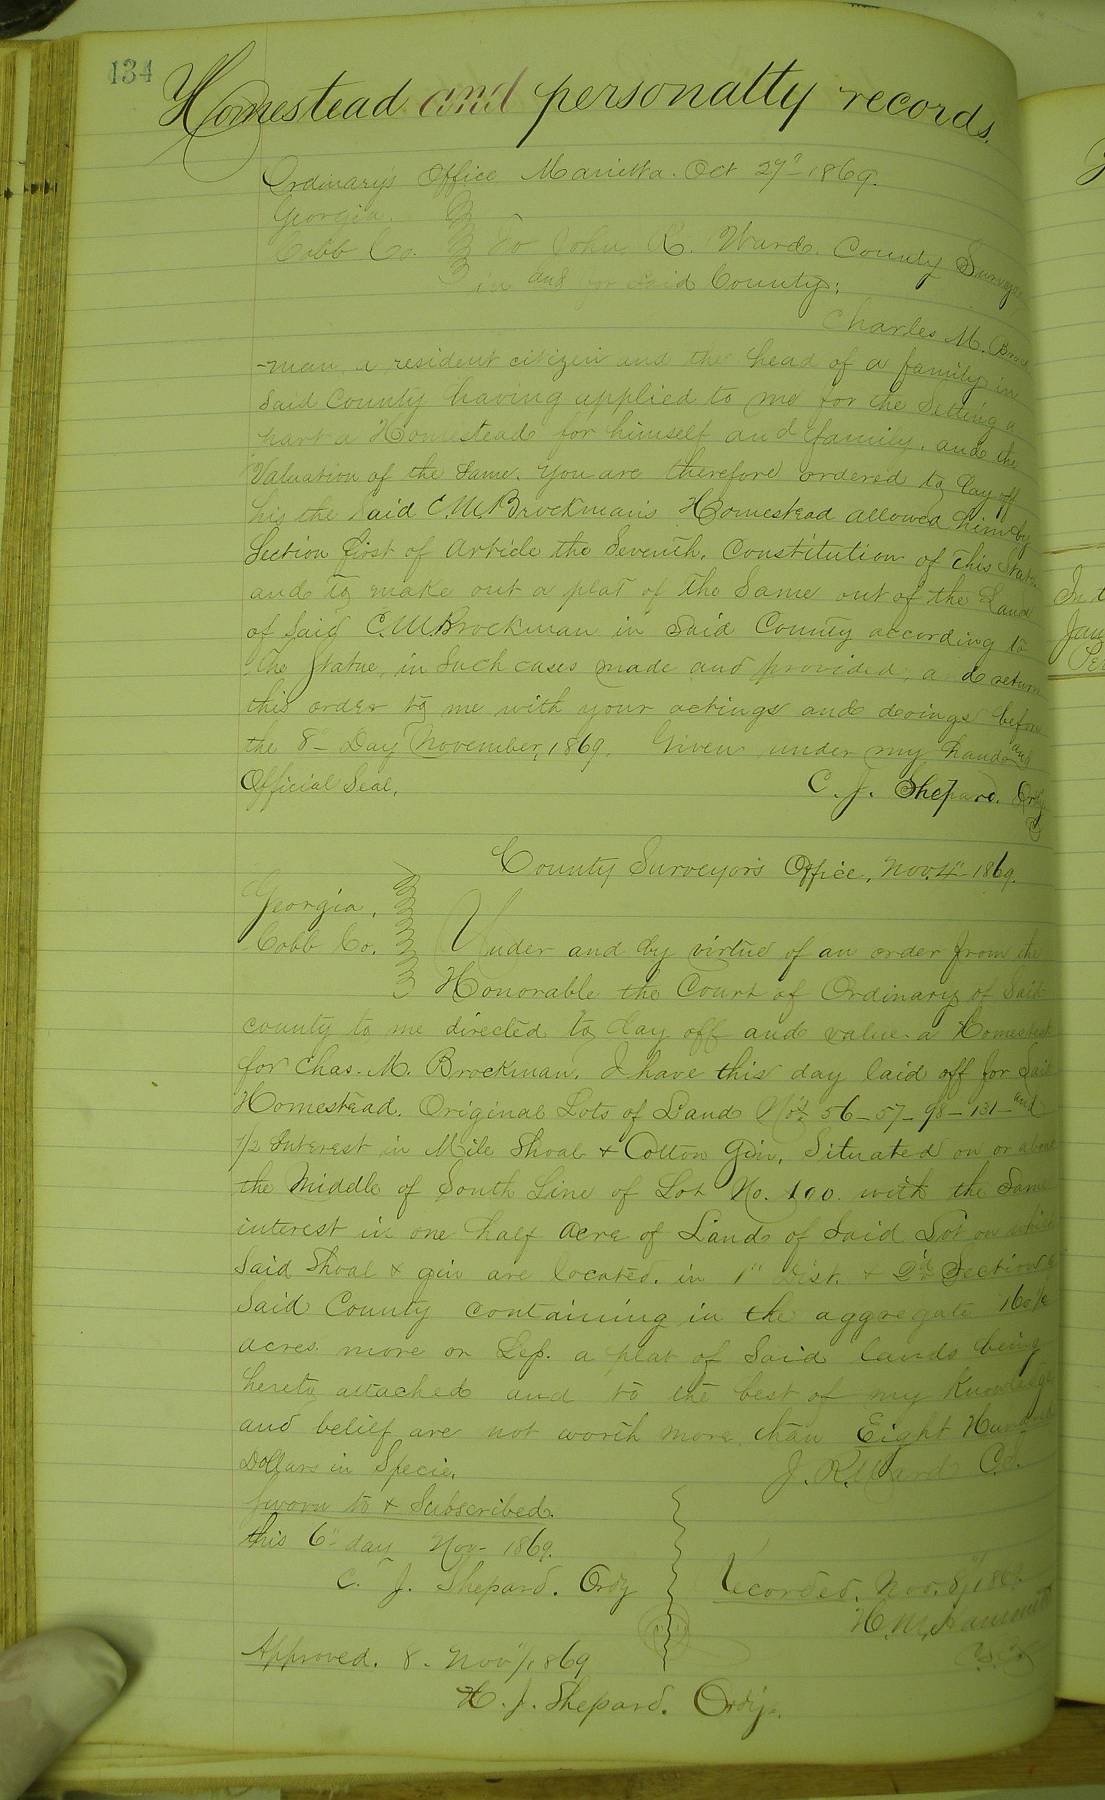 134
Homestead and personalty records.
Ordinary's Office Marietta. Oct 27" - 1869.
Georgia.
Cobb Co. To John R. Ward. County Surveyor
in and for said County:
Charles M. Brock
-man a resident citizen and the head of a family in
Said County having applied to me for the Setting a
part a Homestead for himself and family, and the
Valuation of the Same. You are therefore ordered to lay off
his the Said C.M. Brockman's Homestead allowed him by
Section first of Article the Seventh. Constitution of this State
and to make out a plat of the Same out of the Land
of Said C.M. Brockman in Said County according to
the Statue, in Such cases made and provided, and return
this order to me with your actings and doings before
the 8 - Day November, 1869. Given under my hand and
Official Seal.
C. J. Shepard. Ordy
County Surveyor's Office, Nov. 4" 1869.
Georgia,
Cobb Co. Under and by virtue of an order from the
Honorable the Court of Ordinary of Said
county to me directed to lay off and value a Homestead
for Chas. M. Brockman. I have this day laid off for Said
Homestead. Original Lots of Land Nos 56 - 57 - 98 - 131 - and
1/2 Interest in Mile Shoal & Cotton Gin, Situated on or about
the Middle of South Line of Lot No. 100. with the Same
interest in one half acre of Land of Said Lot on which
Said Shoal & gin are located. in 1" Dist. & 2d Section
Said County containing in the aggregate 160
acres more or Less. a plat of Said lands being
hereto attached and to the best of my Knowledge
and belief are not worth more than Eight Hundred
Dollars in Specie.
J. R. Ward C.S.
Sworn to & Subscribed.
this 6" day Nov - 1869.
C. J. Shepard. Ordy
Recorded. Nov. 8, 1869
H. M. Hammett
Approved. 8 - Nov 1869
H. J. Shepard. Ordy.